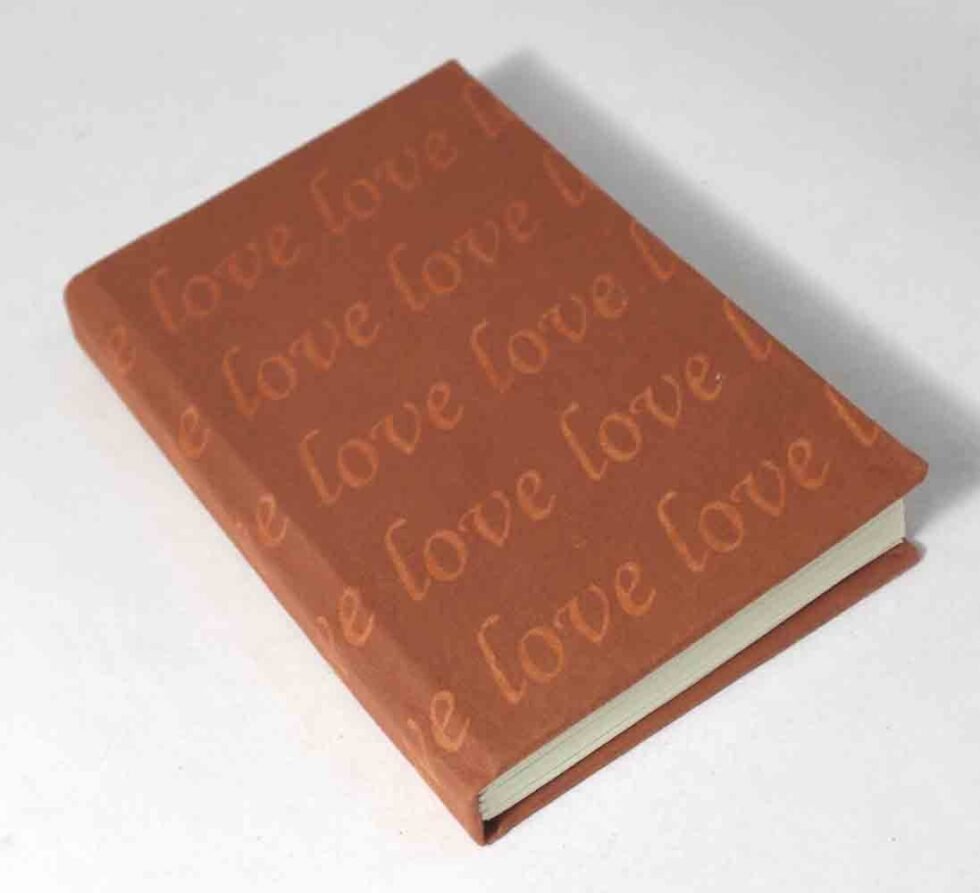 e love love l
e love love l
e love love l
ve love love l
ve love love l